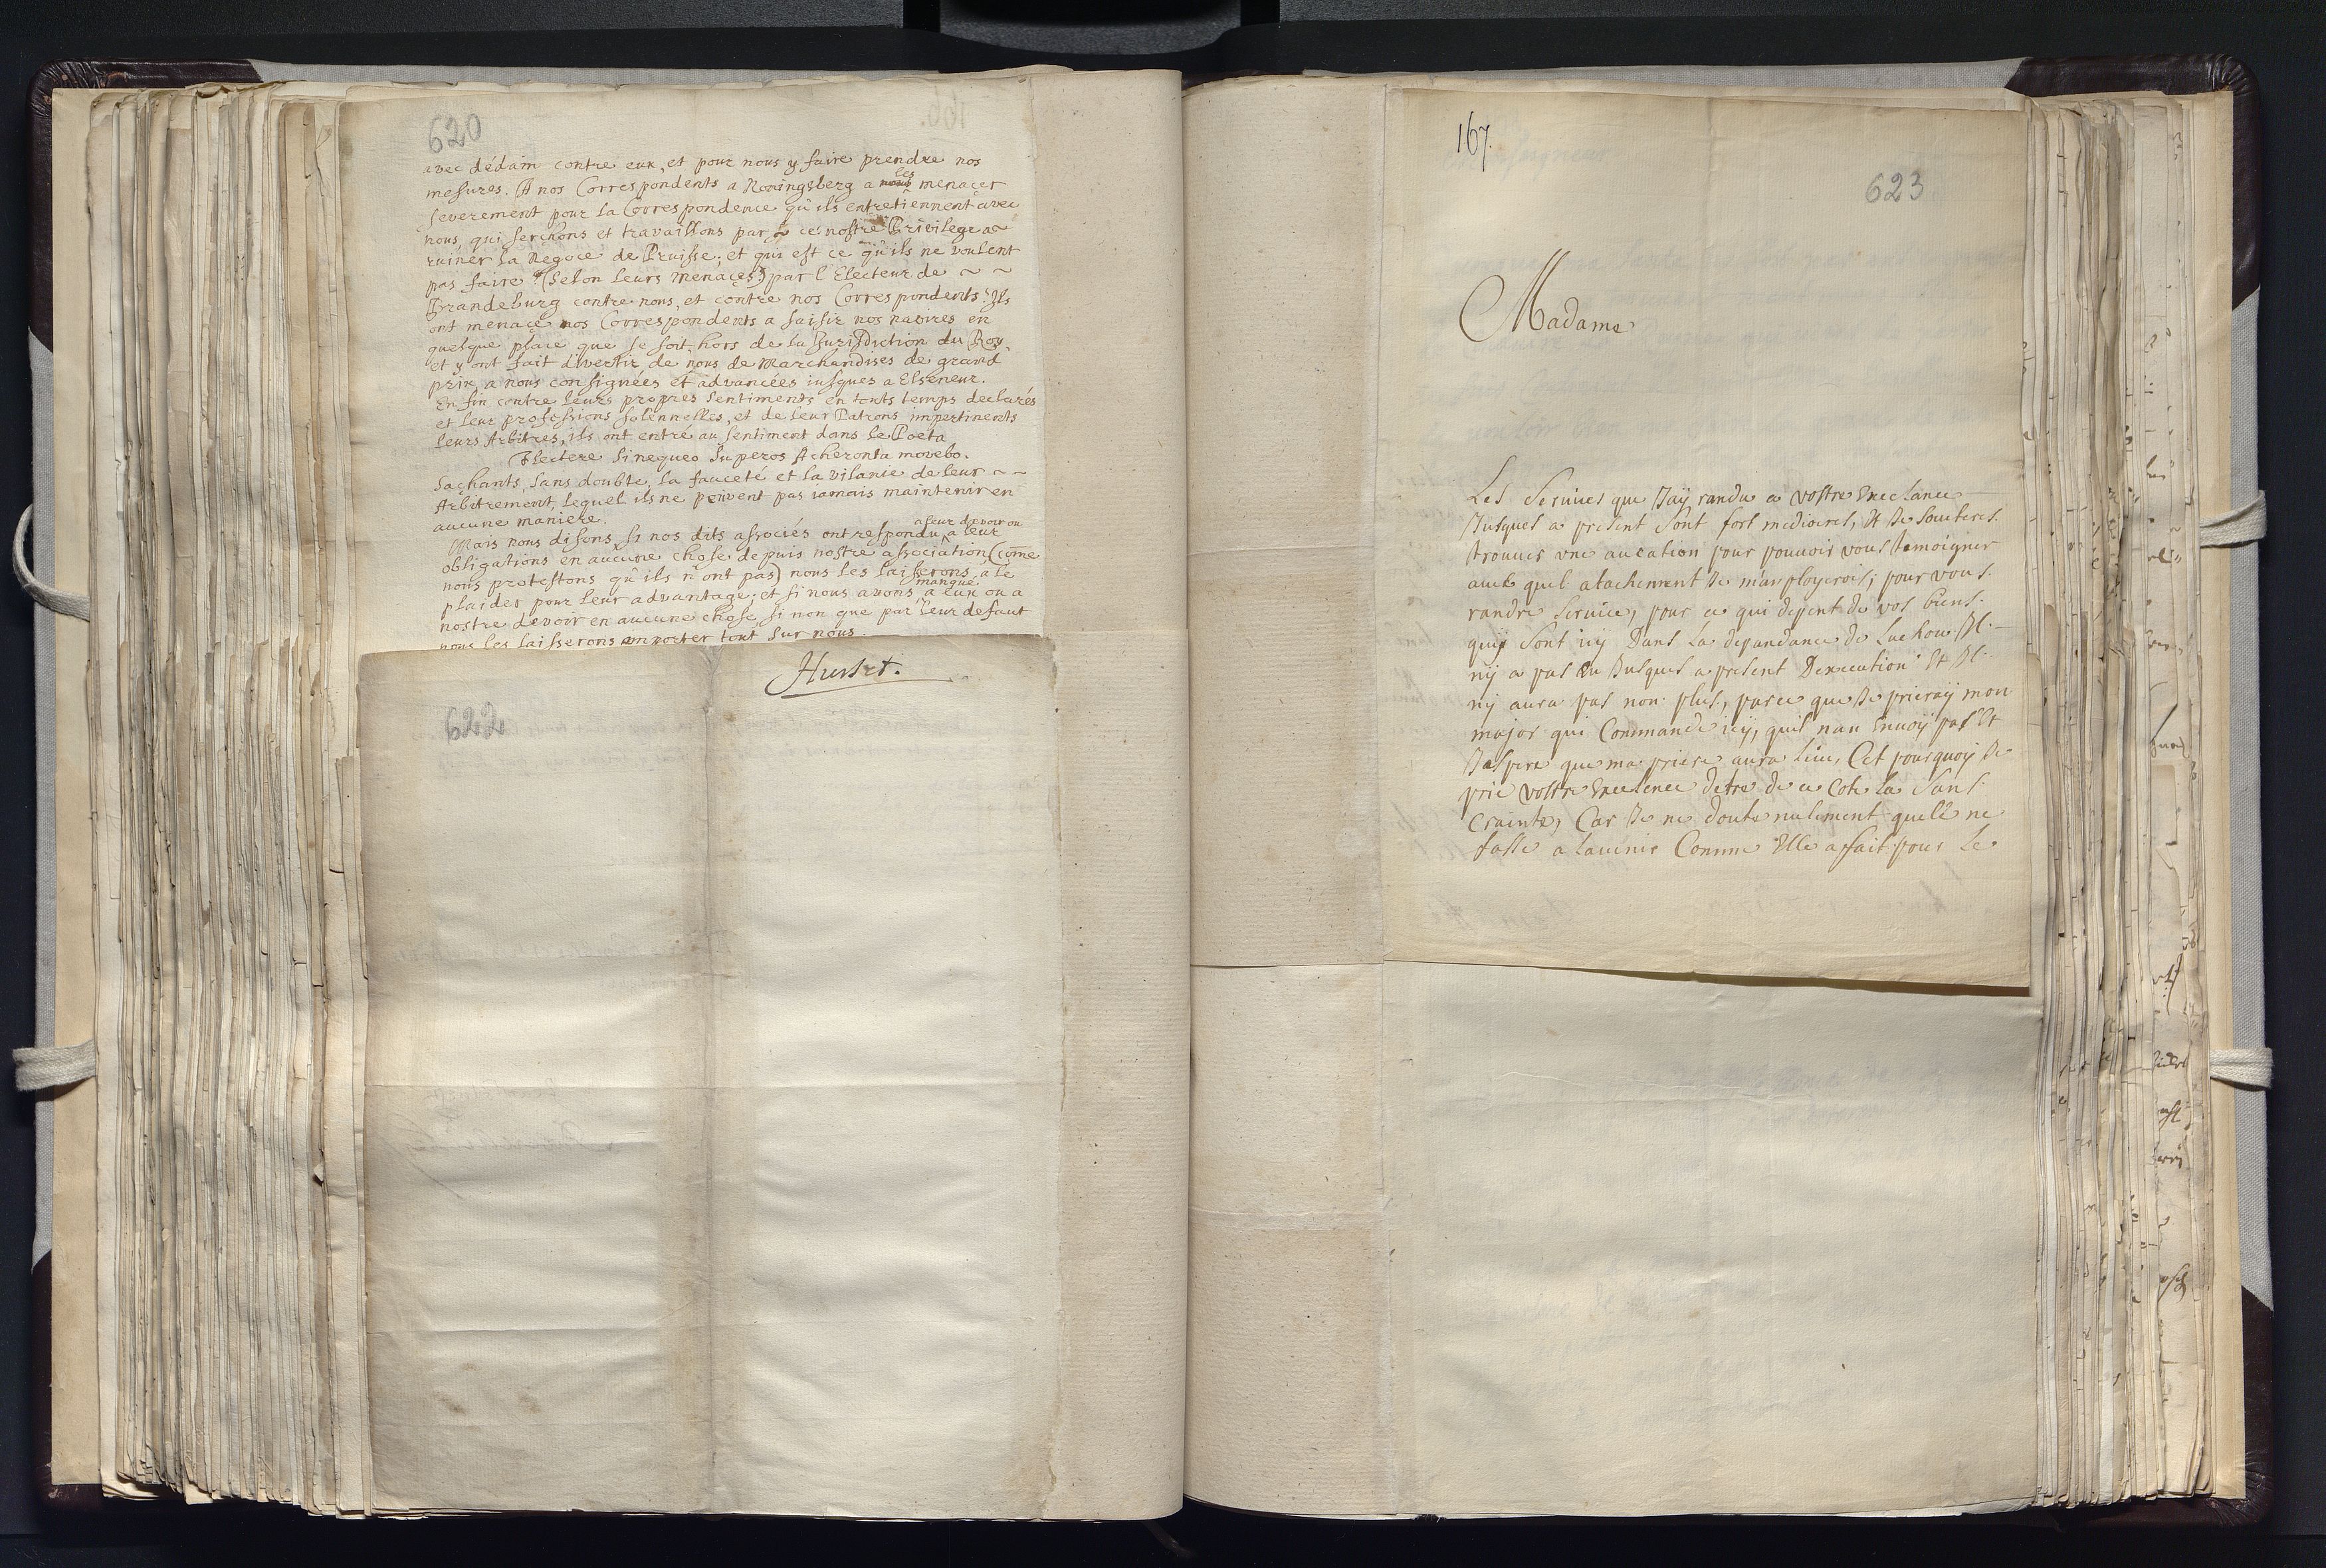 620
avec dédain contre eux, et pour nous y faire prendre nos
mesures. A nos Correspondents a Koningsberg a les menaçer
severement pour la Correspondence qu'ils entretiennent avec
nous, qui serchons et travaillons par ce nostre Privilege a
ruiner la Negoce de Pruisse; et qui est ce qu'ils ne voulent
pas faire (selon leurs menaçes) par l'Electeur de ~ ~
Brandeburg contre nous, et contre nos Correspondents? Ils
ont menacé nos Correspondents a saisir nos navires en
quelque place que se soit hors de la Jurisdiction du Roy,
et y ont fait divertir de nous de Marchandises de grand
prix, a nous consignées et advancées iusques a Elseneur.
En fin contre leurs propres sentiments en touts temps declarés
et leur professions solennelles, et de leur Patrons impertinents
leurs Arbitres, ils ont entré au sentiment dans le Poëta
Flectere si nequeo Superos Acheronta movebo.
Saçhants, sans doubte, la fauceté et la vilanie de leur ~ ~
Arbitrement, lequel ils ne peuvent pas iamais maintenir en
aucune maniere.
Mais nous disons, si nos dits associés ont respondu a leur devoir ou a leur
obligations en aucune chose depuis nostre association (come
nous protestons qu'ils n'ont pas) nous les laisserons a le
plaider pour leur advantage; et si nous avons manqué a eux ou a
nostre devoir en aucune chose, si non que par leur defaut
nous les laisserons emporter tout sur nous.
622
167.
623
Madame
Les Seruices que Jaÿ randu a vostre Execlance
Jusques a present Sont fort mediocres, Et Je Souteres
trouuer vne aucation pour pouuoir vous temoigner
auec quel atachement Je m'anployerois; pour vous
randre Seruice, pour ce qui depent de vos biens
quÿ Sont icÿ Dans La depandance de Luchou Jl
nÿ a pas Eu Jusques a present Dexecution Et Jl
nÿ aura pas non plus, parce que Je prieraÿ mon
major qui Commande icÿ, quil nan Enuoÿ pas Et
Jespere que ma priere aura lieu, Cet pourquoÿ Je
prie vostre Execlence detre de ce Cote la Sans
Crainte, Car Je ne doute nulement quelle ne
fasse a lauenir Comme Elle a fait pour Le